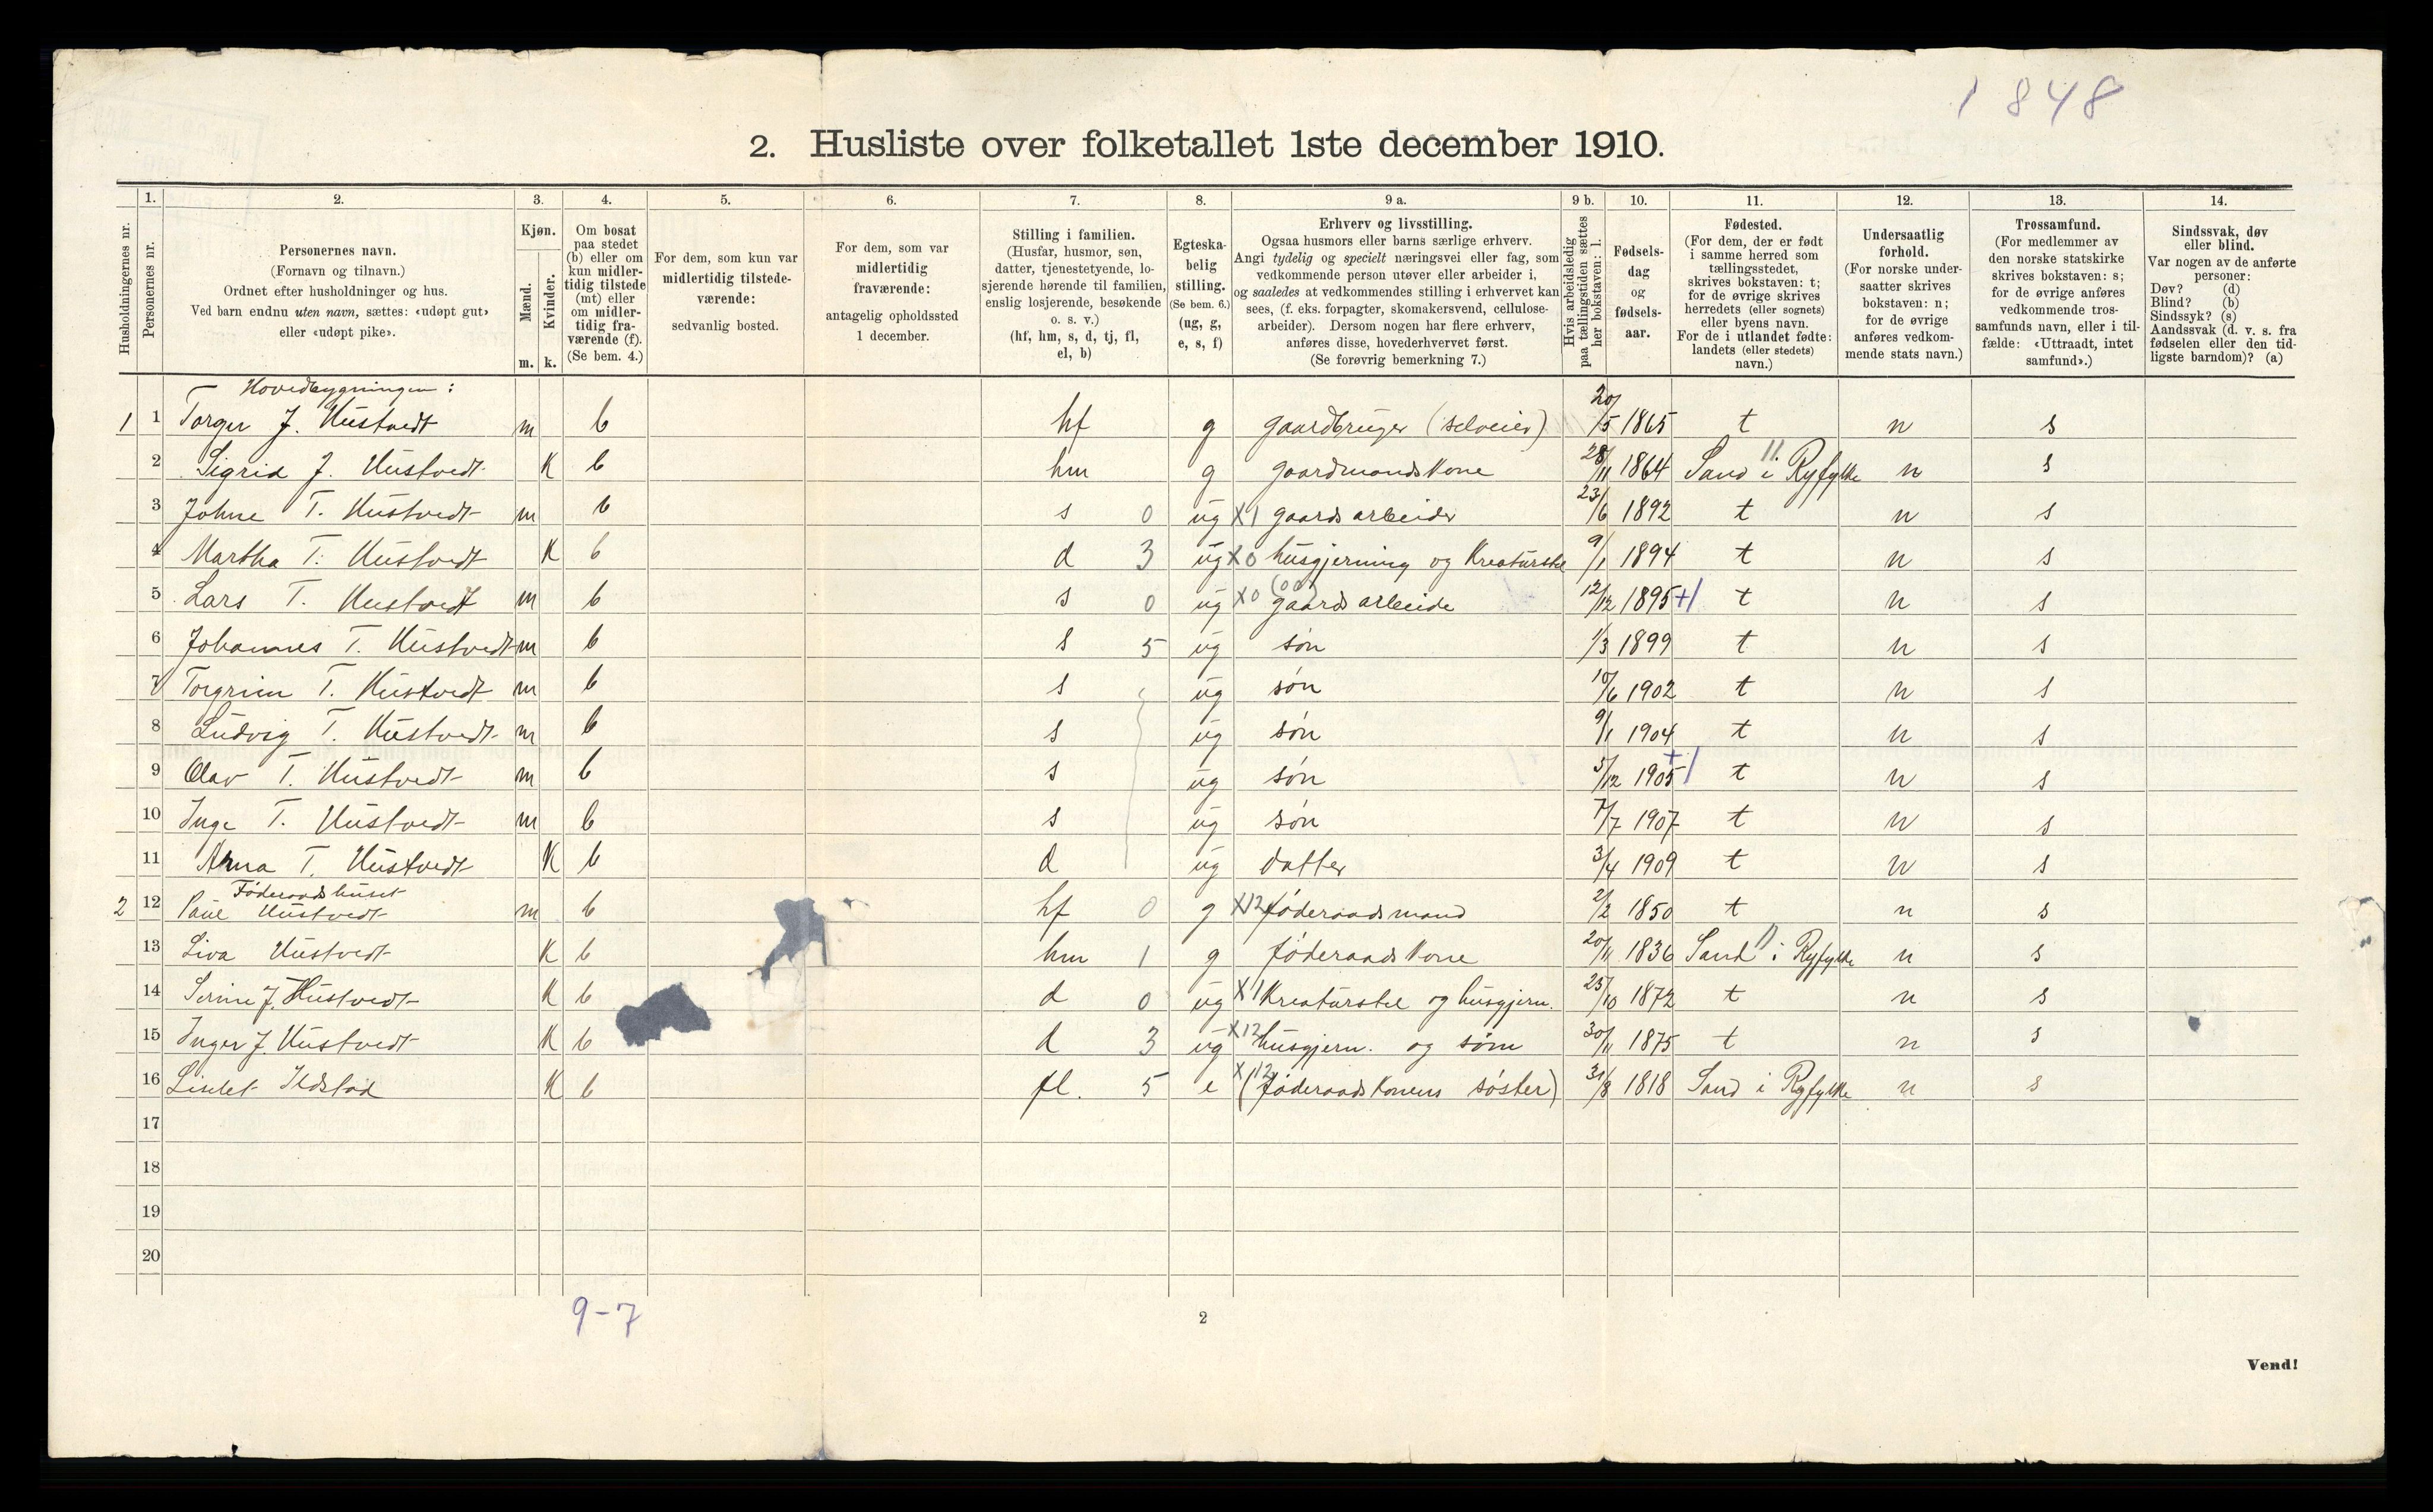 1848
2. Husliste over folketallet 1ste december 1910.
Husholdningernes nr.
1.
Personernes nr.
2.
Personernes navn.
(Fornavn og tilnavn.)
Ordnet efter husholdninger og hus.
Ved barn endnu uten navn, sættes: «udøpt gut»
eller «udøpt pike».
3.
Kjøn.
Mænd.
Kvinder.
m. k.
4.
Om bosat
paa stedet
(b) eller om
kun midler-
tidig tilstede
(mt) eller
om midler-
tidig fra-
værende (f).
(Se bem. 4.)
5.
For dem, som kun var
midlertidig tilstede-
værende:
sedvanlig bosted.
6.
For dem, som var
midlertidig
fraværende:
antagelig opholdssted
1 december.
7.
Stilling i familien.
(Husfar, husmor, søn,
datter, tjenestetyende, lo-
sjerende hørende til familien,
enslig losjerende, besøkende
o. s. v.)
(hf, hm, s, d, tj, fl,
el, b)
8.
Egteska-
belig
stilling.
(Se bem. 6.)
(ug, g,
e, s, f)
9 a.
Erhverv og livsstilling.
Ogsaa husmors eller barns særlige erhverv.
Angi tydelig og specielt næringsvei eller fag, som
vedkommende person utøver eller arbeider i,
og saaledes at vedkommendes stilling i erhvervet kan
sees, (f. eks. forpagter, skomakersvend, cellulose-
arbeider). Dersom nogen har flere erhverv,
anføres disse, hovederhvervet først.
(Se forøvrig bemerkning 7.)
9 b.
Hvis arbeidsledig
paa tællingstiden sættes
her bokstaven: l.
10.
Fødsels-
dag
og
fødsels-
aar.
11.
Fødested.
(For dem, der er født
i samme herred som
tællingsstedet,
skrives bokstaven: t;
for de øvrige skrives
herredets (eller sognets)
eller byens navn.
For de i utlandet fødte:
landets (eller stedets)
navn.)
12.
Undersaatlig
forhold.
(For norske under-
saatter skrives
bokstaven: n;
for de øvrige
anføres vedkom-
mende stats navn.)
13.
Trossamfund.
(For medlemmer av
den norske statskirke
skrives bokstaven: s;
for de øvrige anføres
vedkommende tros-
samfunds navn, eller i til-
fælde: «Uttraadt, intet
samfund».)
14.
Sindssvak, døv
eller blind.
Var nogen av de anførte
personer:
Døv? (d)
Blind? (b)
Sindssyk? (s)
Aandssvak (d. v. s. fra
fødselen eller den tid-
ligste barndom)? (a)
Hovedbygningen:
1 1 Torger J. Hustvedt m b hf g gaardbruger (selveier) 20/5 1865 t n s
2 Sigrid J. Hustvedt K b hm g gaardmandskone 28/11 1864 Sand i Ryfylke 11. n s
3 Johne T. Hustvedt m b s 0 ug X1 gaardsarbeider 23/6 1892 t n s
4 Martha T. Hustvedt K b d 3 ug X0 husgjerning og Kreaturstel 9/1 1894 t n s
5 Lars T. Hustvedt m b s 0 ug X0 (00) gaardsarbeide 12/12 1895 +1 t n s
6 Johannes T. Hustvedt m b s 5 ug søn 1/3 1899 t n s
7 Torgrim T. Hustvedt m b s ug søn 10/6 1902 t n s
8 Ludvig T. Hustvedt m b s ug søn 9/1 1904 t n s
9 Olav T. Hustvedt m b s ug søn 5/12 1905 +1 t n s
10 Inge T. Hustvedt m b s ug søn 7/7 1907 t n s
11 Anna T. Hustvedt K b d ug datter 3/4 1909 t n s
Føderaadshuset
2 12 Paul Hustvedt m b hf 0 g X12 føderaadsmand 2/2 1850 t n s
13 Liva Hustvedt K b hm 1 g føderaadskone 20/11 1836 Sand i Ryfylke 11 n s
14 Serine J. Hustvedt K b d 0 ug X1 Kreaturstel og husgjern. 25/10 1872 t n s
15 Inger J. Hustvedt K b d 3 ug X12 husgjern. og søm 30/11 1875 t n s
16 Lisbet Ildstad K b fl. 5 e X12 (føderaadskonens søster) 31/8 1818 Sand i Ryfylke n s
17
18
19
20
9-7
2
Vend!